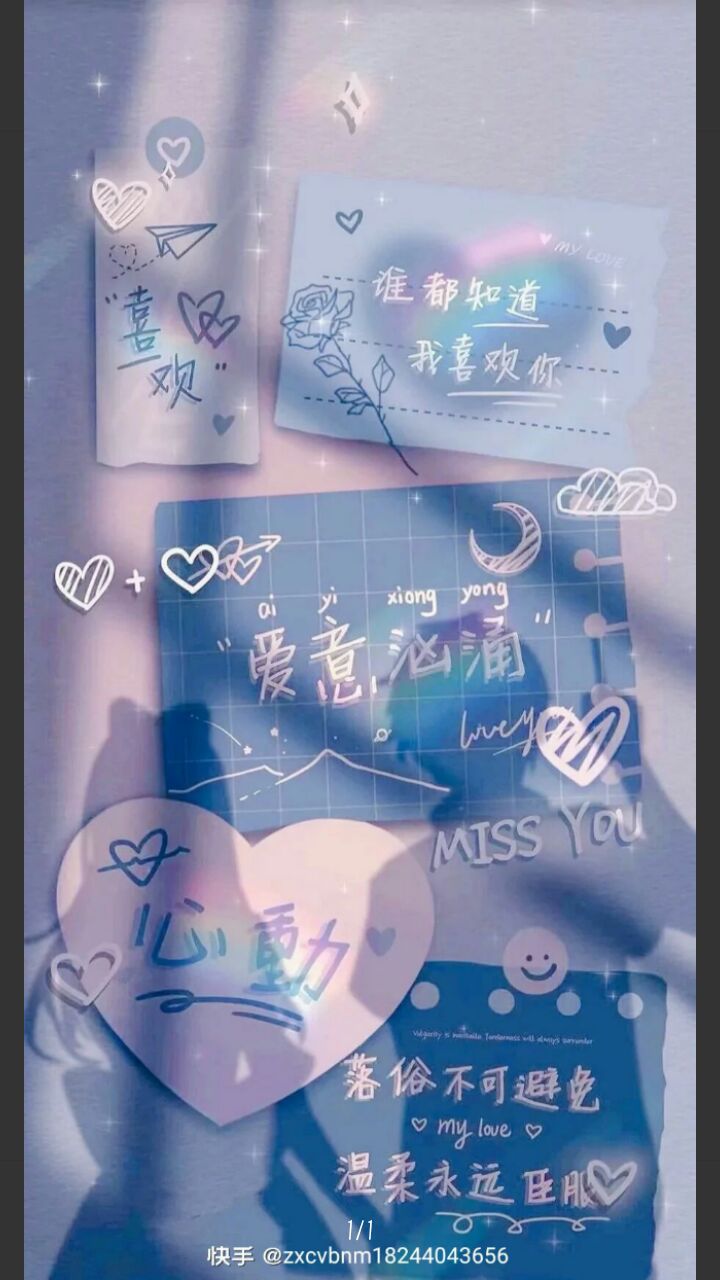 "喜
欢"
MY LOVE
谁都知道
我喜欢你
+
ai yi xiong yong
"爱意汹涌"
MISS YOU
心動
落俗不可避免
my love
温柔永远臣服
1/1
快手 @zxcvbnm18244043656